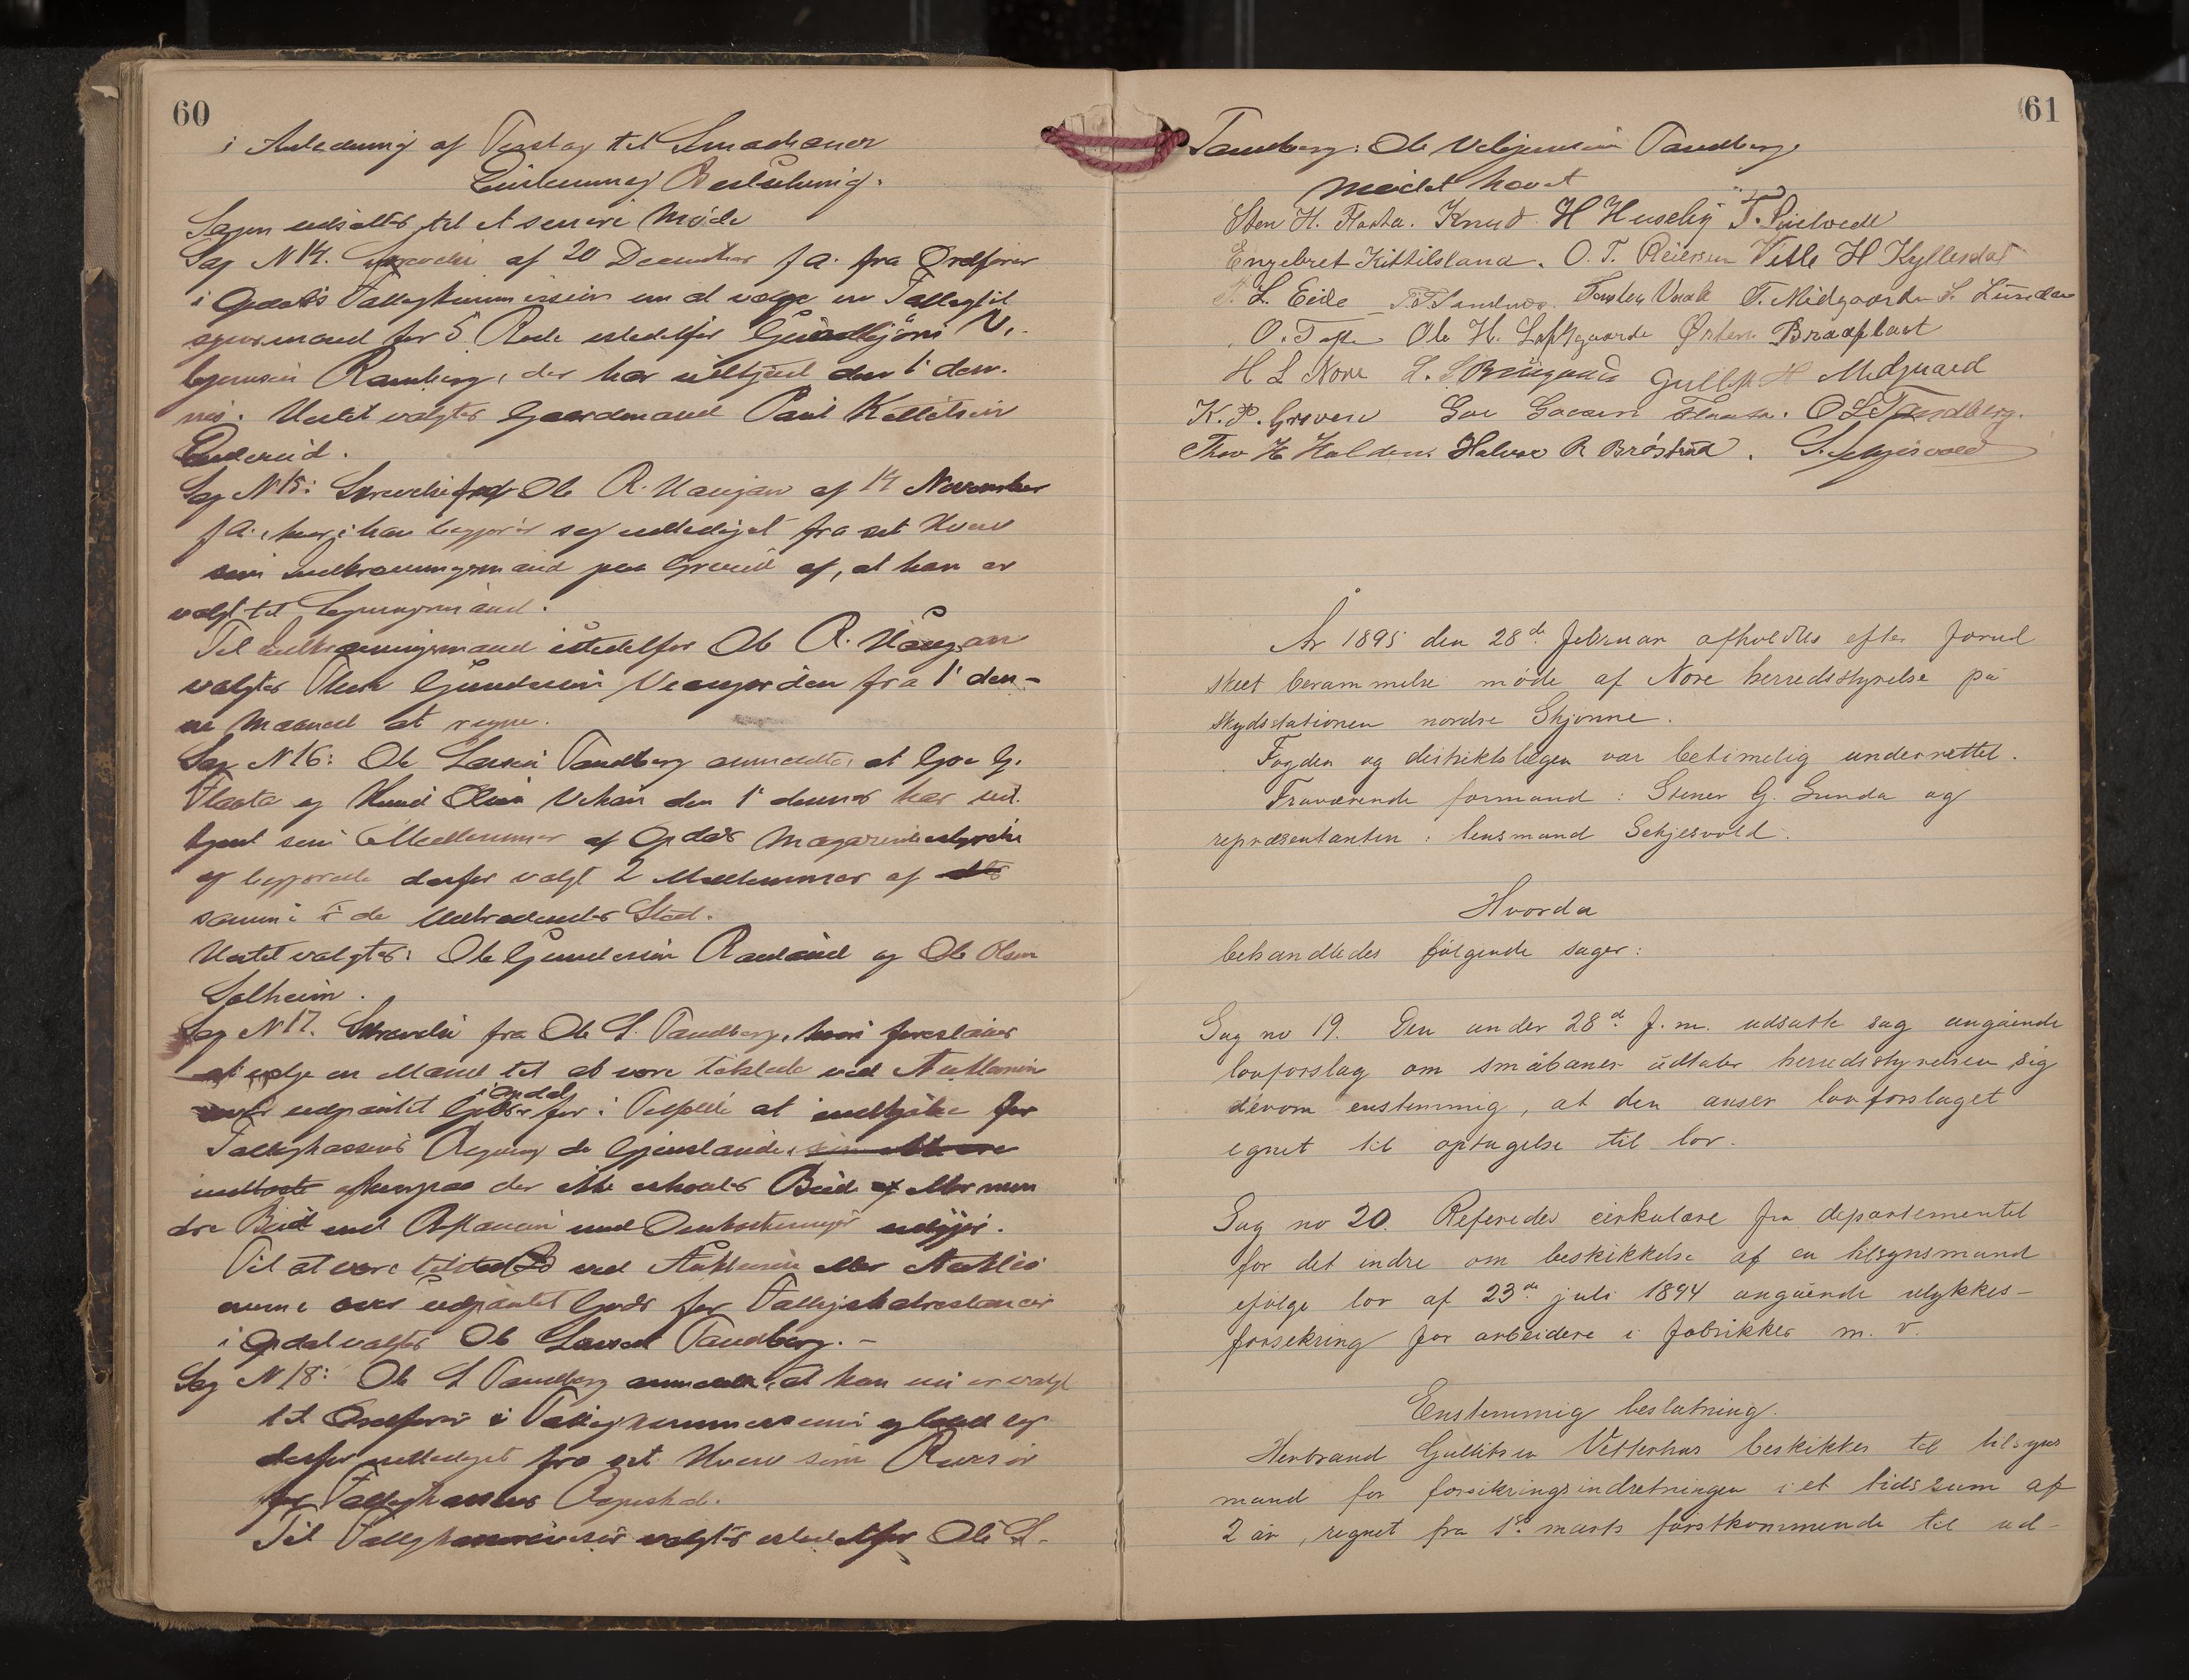 60
i Anledning af Forslag til Smaabaner
Enstemmig Beslutning.
Sagen udsættes til et senere Møde
Sag N 14. Skrivelse af 20 December f a. fra Ordfører
i Opdals Fattigkommission om at vælge en Fattigtil
synsmand for 5 Rode istedetfor
Ramberg, der har udtjent den 1' den-
nes. Hertil valgtes Gaardmand Paul Kittilsen
Sag N 15: Skrivelse fra Ole R. Haugan af 14 November
f a. hvori han begjærer sig entlediget fra sit Hverv
som Inddrivningsmand paa Grund af, at han er
valgt til
Til istedetfor Ole R. Haugan
valgtes Gundersen fra 1' den-
ne Maaned at regne.
Sag N 16: Ole Larsen Tandberg anmeldte, at Goe G.
Flaata og Knud Olsen den 1' dennes har ud-
tjent som Medlemmer af Opdals Magasinbestyrelse
og begjærede derfor valgt 2 Medlemmer af
samme i de Udtrædendes Sted.
Hertil valgtes: Ole Gundersen Rauland og Ole Olsen
Solheim.
Sag N 17. Skrivelse fra Ole L. Tandberg, hvori foreslaaes
at vælge en Mand til at være tilstede ved Auktioner
i Opdal
over udpantet Gods for at indkjøbe for
Fattigkassens Regning de Gjenstande,
der ikke Bud eller min
dre Bud end Restancen med Omkostninger udgjør.
Til at være tilstede ved Auktionen eller Auktio
nerne over udpantet Gods for Fattigskatrestancer
i Opdal valgtes Ole Larsen Tandberg. –
Sag N 18: Ole L Tandberg anmeldte, at han nu er valgt
til Ordfører i Fattigkommissionen og bad sig
derfor entlediget fra sit Hverv som Revisor
for Fattigkassens Regnskab.
Til valgtes istedetfor Ole L.
61
Tandberg: Ole Tandberg.
Mødet hævet
Sten H. Flaata. Knud H Huseby T.
Engebret Kittilsland. O. T. Reiersen Vetle H Kyllesdal
T. L. Eide T. Midgaarden S. Lunden
O. Ole H. Loftsgaarde Østen Braaplast
H L Nore L. S. Gullik H Midgaard
K. P. Groven Goe Goesen Flaata. O L Tandberg.
Thov H Halden Halvor R Brøstrud. S. Sehjesvold
År 1895 den 28de februar afholdtes efter forud
skeet berammelse møde af Nore herredsstyrelse på
skydsstationen nordre Skjønne.
Fogden og distriktslægen var betimelig underrettet.
Fraværende formand: Stener G. Lunda og
repræsentanten: lensmand Sehjesvold.
Hvorda
behandledes følgende sager:
Sag no 19. Den under 28de f. m. udsatte sag angående
lovforslag om småbaner udtaler herredsstyrelsen sig
derom enstemmig, at den anser lovforslaget
egnet til optagelse til lov.
Sag no 20. Referedes cirkulære fra departementet
for det indre om beskikkelse af en tilsynsmand
ifølge lov af 23de juli 1894 angående ulykkes-
forsekring for arbeidere i fabrikker m. v.
Enstemmig beslutning.
Herbrand Gullitsen Vetterhus beskikkes til tilsyns
mand for forsikringsindretningen i et tidsrum af
2 år, regnet fra 1ste marts førstkommende til ud-